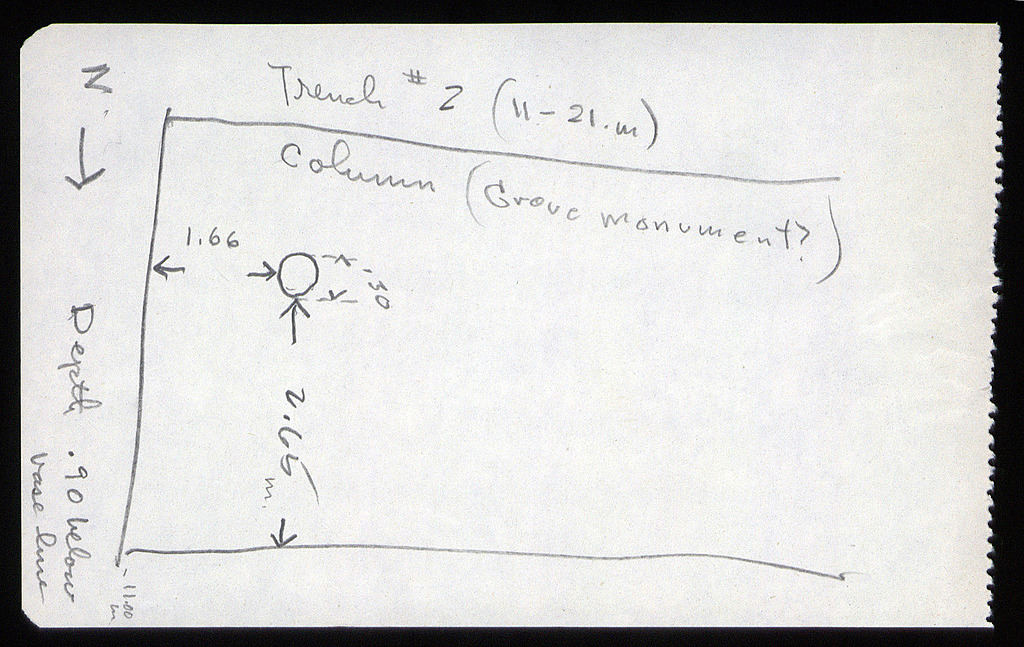 Trench # 2 (11-21.m)
Column (Grove monument?)
N.
1.66
.30
2.65 m.
Depth .90 below
base line
-11.00 m